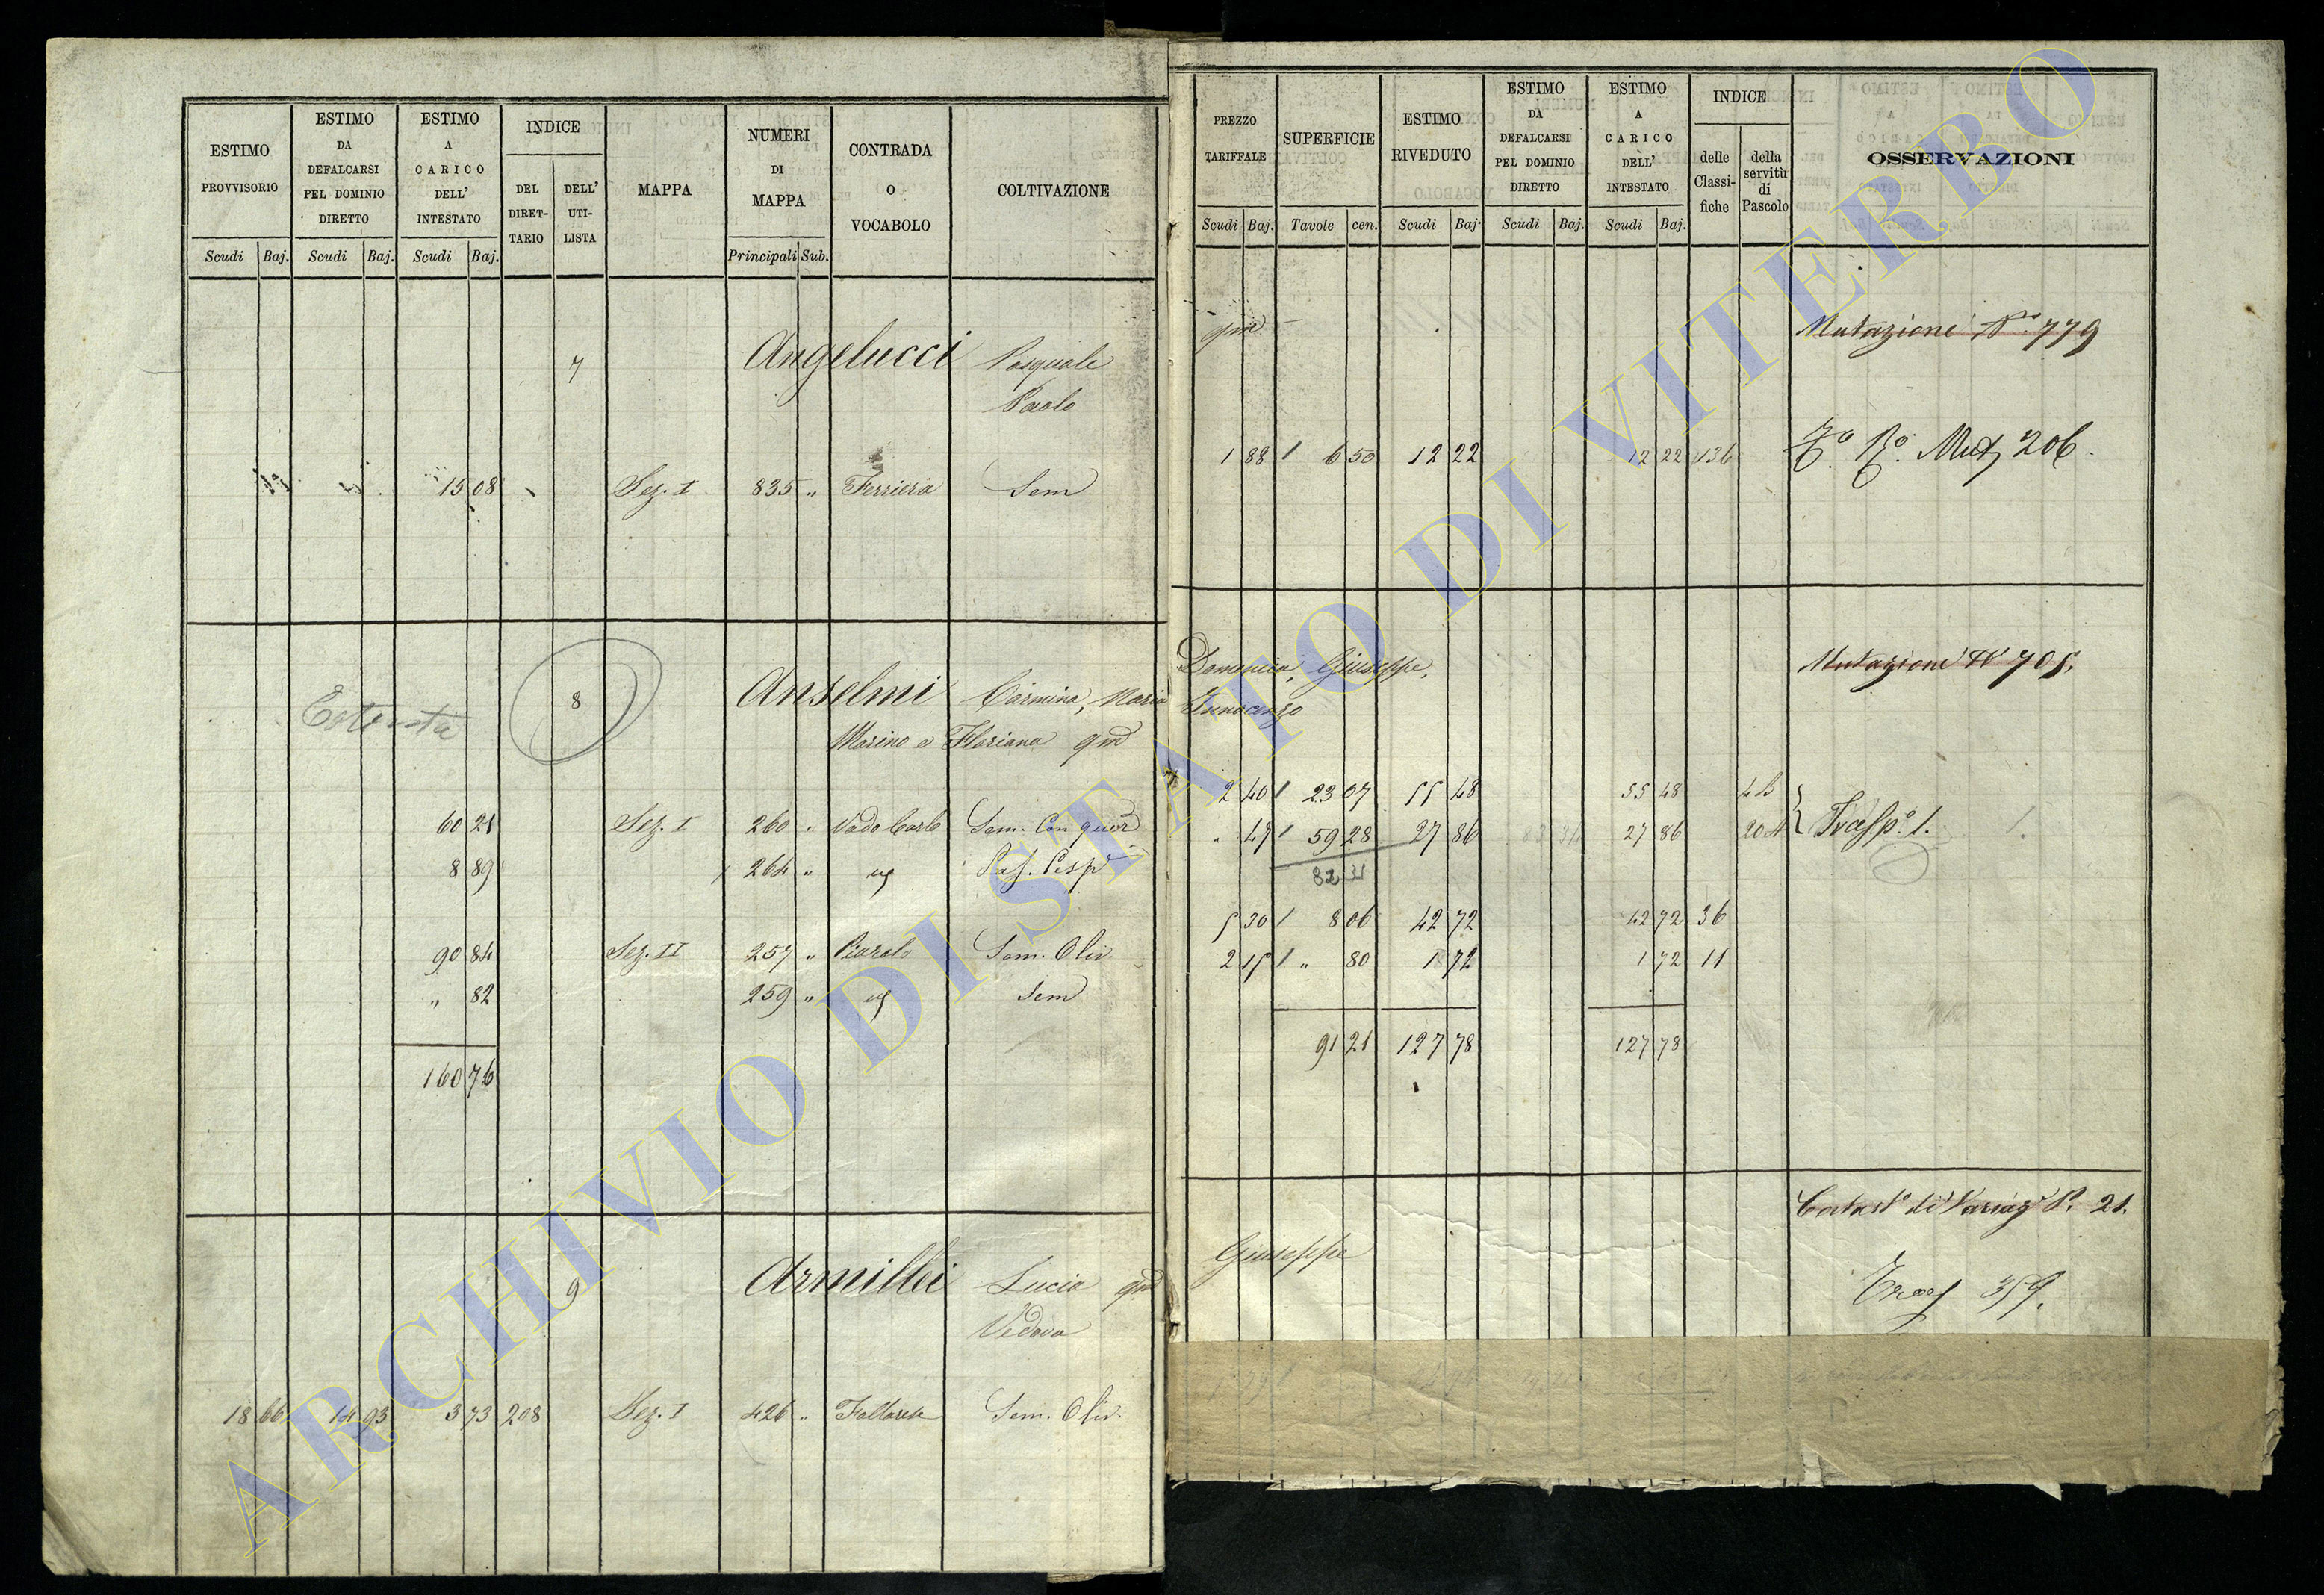 ESTIMO PROVVISORIO
ESTIMO DA DEFALCARSI PEL DOMINIO DIRETTO
ESTIMO A CARICO DELL' INTESTATO
INDICE
DEL DIRET-TARIO
DELL' UTI-LISTA
MAPPA
NUMERI DI MAPPA
CONTRADA O VOCABOLO
COLTIVAZIONE
Scudi Baj. Scudi Baj. Scudi Baj. Principali Sub.
PREZZO TARIFFALE
SUPERFICIE
ESTIMO RIVEDUTO
ESTIMO DA DEFALCARSI PEL DOMINIO DIRETTO
ESTIMO A CARICO DELL' INTESTATO
INDICE
delle Classi-fiche
della servitù di Pascolo
OSSERVAZIONI
Scudi Baj. Tavole cen. Scudi Baj. Scudi Baj. Scudi Baj.
7 Angelucci Pasquale qm Mutazione N.° 779
Paolo
15 08 Sez. I 835 " Ferriera Sem 1 88 6 50 12 22 12 22 136 Mut 206.
8 Anselmi Carmina, Maria Domenica, Giuseppe, Mutazione N° 705.
Marino e Floriana qm Innocenzo
60 21 Sez. I 260 " Vado Carlo Sem. Con quer 2 40 23 07 55 48 55 48 4 B
8 89 264 " Pas. Cesp " 47 59 28 27 86 27 86 20 A Trasp.° 1. 1.
82 31
90 84 Sez. II 257 " Sem. Oliv. 5 30 8 06 42 72 42 72 36
" 82 259 " Sem 2 15 " 80 1 72 1 72 11
160 76 91 21 127 78 127 78
9 Armillei Lucia qm Giuseppe 21.
Vedova 359.
18 66 14 93 3 73 208 Sez. I 426 " Sem. Oliv.
ARCHIVIO DI STATO DI VITERBO